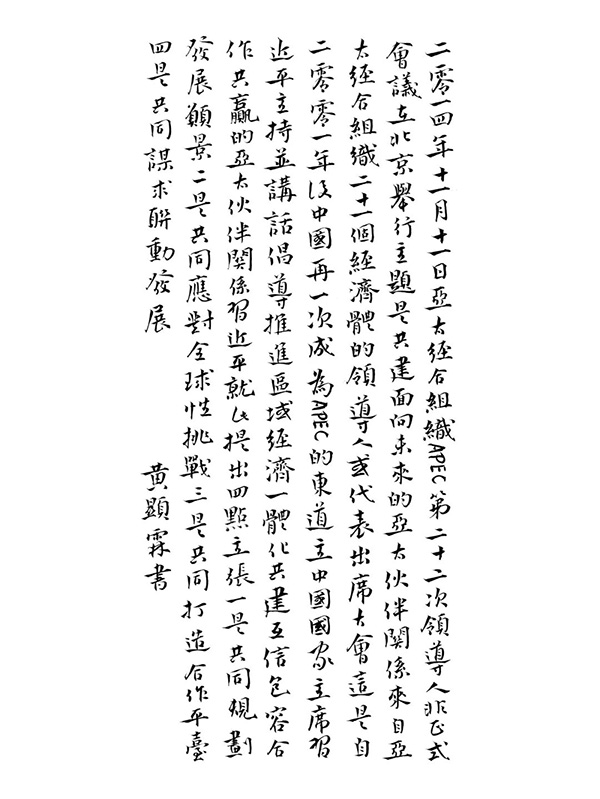 二零一四年十一月十一日亞太經合組織APEC第二十二次領導人非正式
會議在北京舉行主題是共建面向未來的亞太伙伴關係來自亞
太經合組織二十一個經濟體的領導人或代表出席大會這是自
二零零一年後中國再一次成為APEC的東道主中國國家主席習
近平主持並講話倡導推進區域經濟一體化共建互信包容合
作共贏的亞太伙伴關係習近平就此提出四點主張一是共同規劃
發展願景二是共同應對全球性挑戰三是共同打造合作平臺
四是共同謀求聯動發展
黃顯霖書